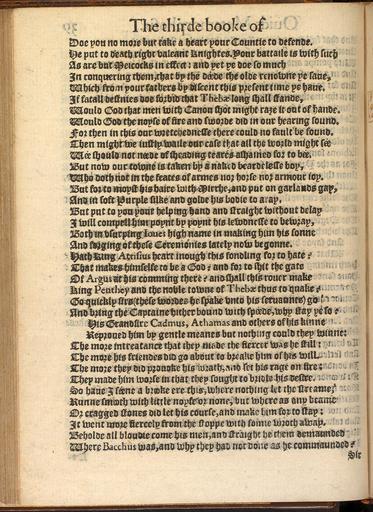 The thirde booke of
Doe you no more but take a heart your Countie to defende.
He put to death right valeant Knightes. Your battaile is with such
As are but Meicocks in effect: and yet ye doe so much
In conquering them, that by the dede the olde renowne ye saue,
Which from your fathers by discent this present time ye haue.
If fatall destnies doe forbid that Thebæ long shall stande,
Would God that men with Canon shot might raze it out of hande,
Would God the noyse of fire and sworde did in our hearing sound,
For then in this our wretchednesse there could no fault be found.
Then might we iustly waile our case that all the world might see
We should not neede of sheading teares ashamed for to bee.
But now our towne is taken by a naked beardelesse boy,
Who doth not in the feates of armes nor horse nor armour ioy,
But for to moyst his haire with Mirrhe, and put on garlands gay,
And in soft Purple silke and golde his bodie to aray.
But put to you your helping hand and straight without delay
I will compell him poynt by poynt his lewdnesse to bewray,
Both in vsurping Ioues high name in making him his sonne
And forging of these Ceremonies lately now begonne.
Hath King Atrisius heart inough this fondling for to hate
That makes himselfe to be a God: and for to shit the gate
Of Argus at his comming there: and shall this rouer make
King Penthey and the noble towne of Thebæ thus to quake:
Go quickly sirs (these wordes he spake vnto his seruauntes) go
And bring the Captaine hither bound with speede. why stay ye so
His Grandsire Cadmus, Athamas and others of his kinne
Reproued him by gentle meanes but nothing could they winne:
The more intreatance that they made the fiercer was he still:
The more his friendes did go about to breake him of his will.
The more they did prouoke his wrath, and set his rage on fire:
They made him worse in that they sought to bridle his desire.
So haue I seene a brooke ere this, where nothing let the streame,
Runne smooth with little noyse or none, but where as any beame
Or cragged stones did let his course, and make him for to stay:
It went more fiercely from the stoppe with some wroth away.
Beholde all bloudie come his men, and straight he them demaunded
Where Bacchus was, and why they had not done as he commaunded
Sir